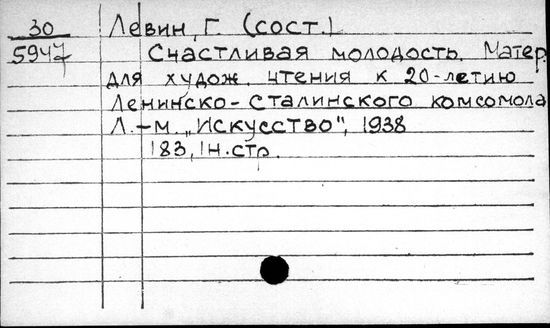 30 Левин, Г. (сост.)
5947 Счастливая молодость. Матер.
для худож. чтения к 20-летию
Ленинско-Сталинского комсомола
Л.-М. „Искусство", 1938
183, 1н.стр.